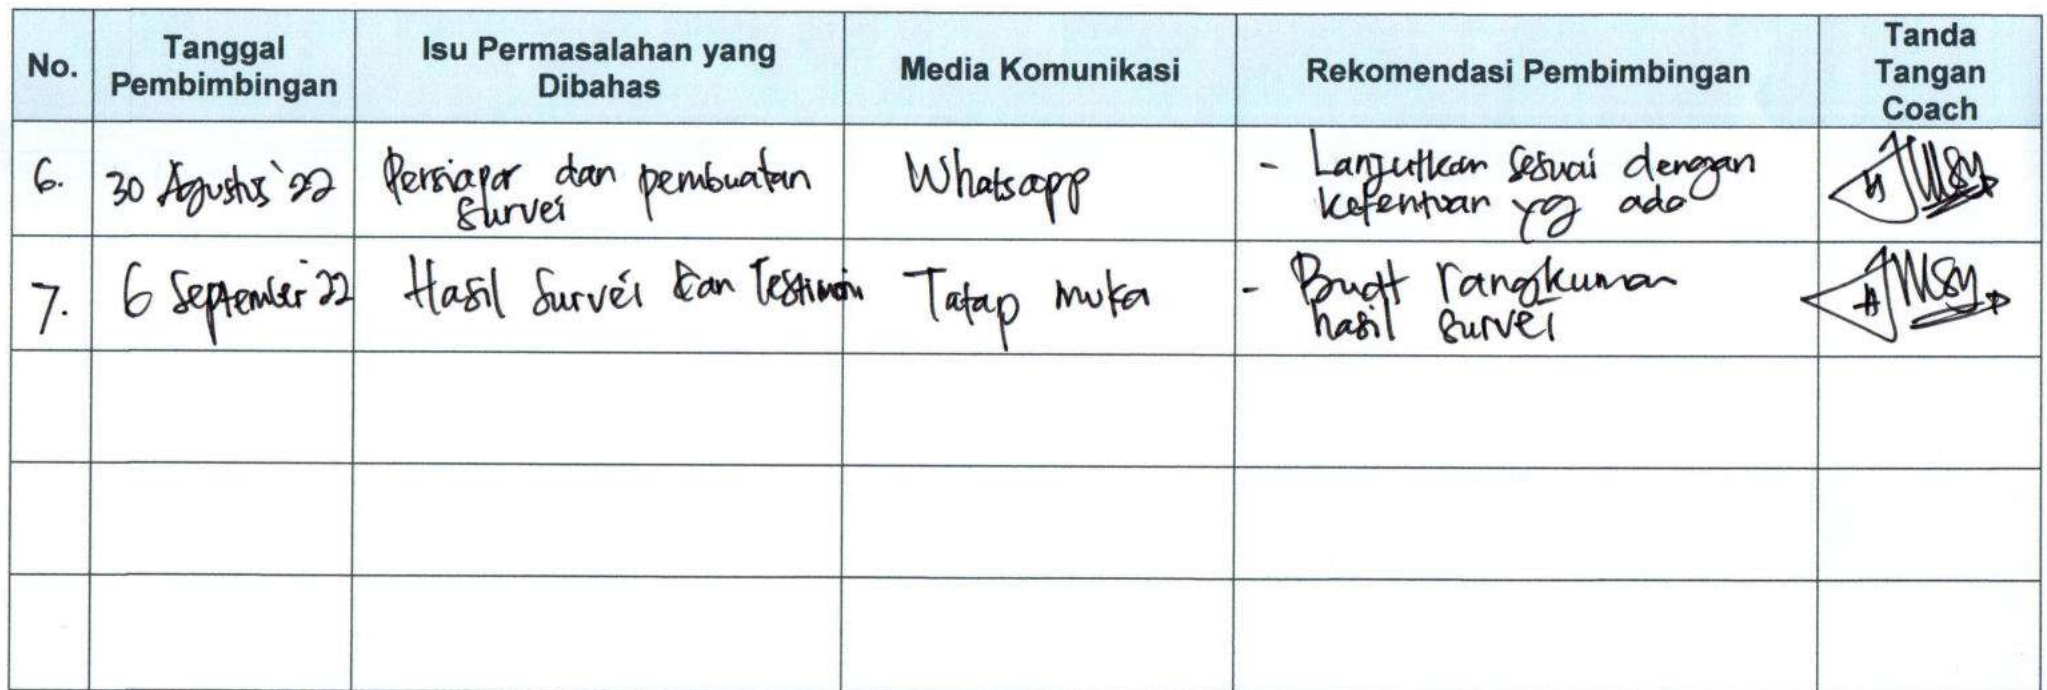 No.
Tanggal
Pembimbingan
Isu Permasalahan yang
Dibahas
Media Komunikasi
Rekomendasi Pembimbingan
Tanda
Tangan
Coach
6.
30 Agustus '22
Persiapan dan pembuatan
survei
Whatsapp
- Lanjutkan sesuai dengan
ketentuan yg ada
7.
6 September '22
Hasil Survei dan Testimoni
Tatap muka
- Buat rangkuman
hasil survei